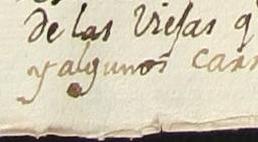 De las Viejas q
y algunos carr